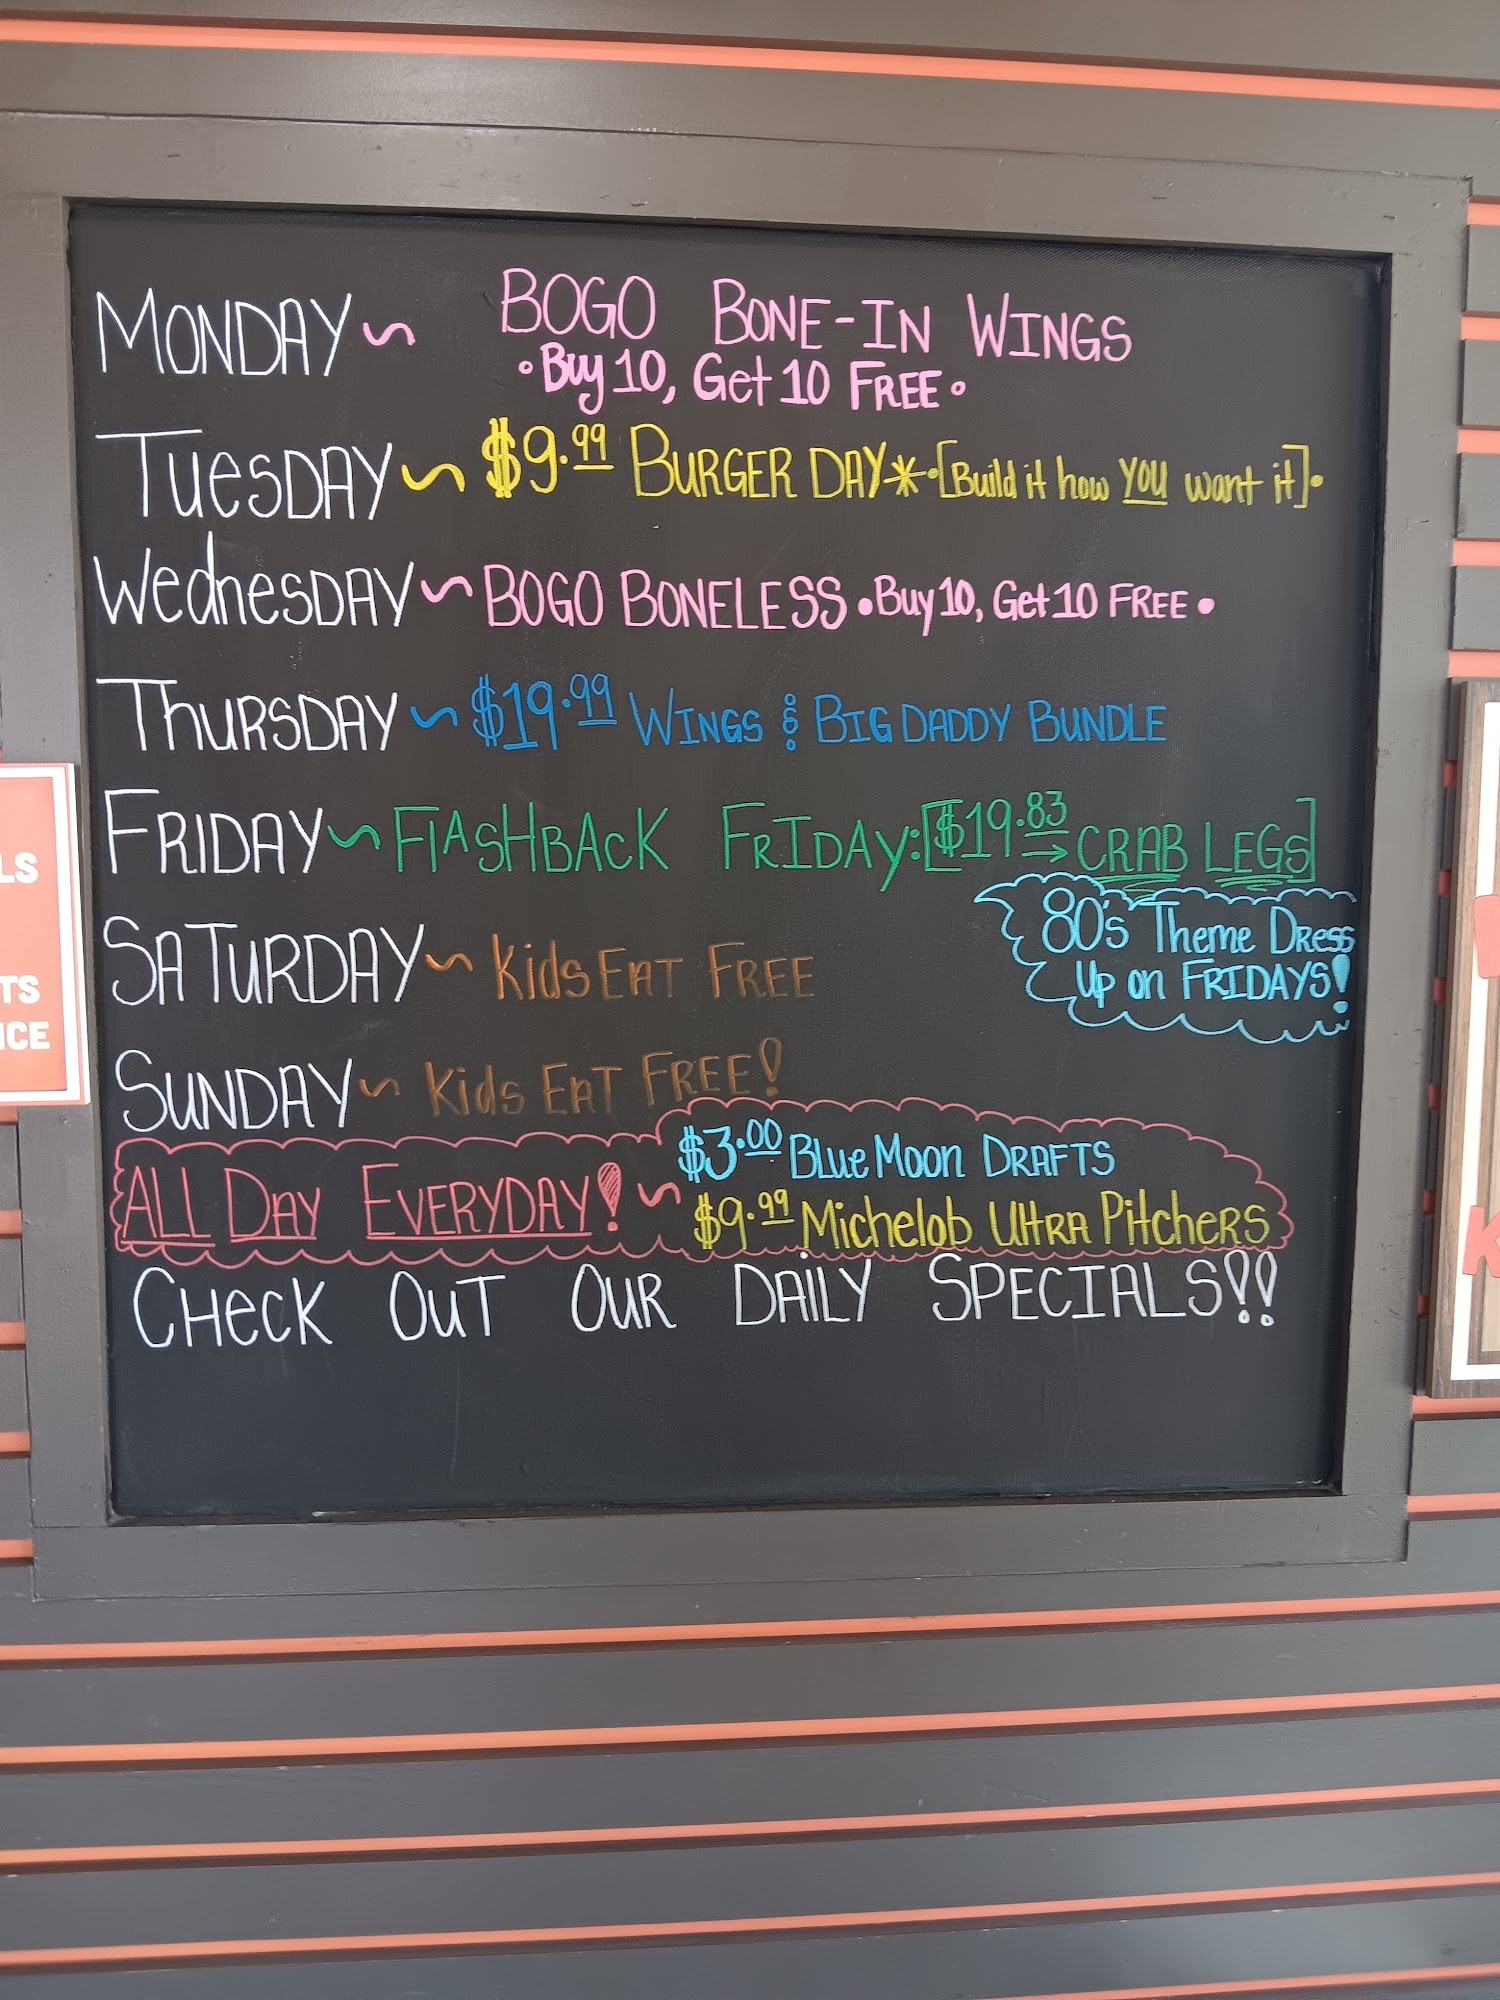 MONDAY ~ BOGO BONE-IN WINGS
• Buy 10, Get 10 FREE •
TUESDAY ~ $9.99 BURGER DAY* • [Build it how YOU want it] •
WEDNESDAY ~ BOGO BONELESS • Buy 10, Get 10 FREE •
THURSDAY ~ $19.99 WINGS & BIG DADDY BUNDLE
FRIDAY ~ FLASHBACK FRIDAY: [$19.83 → CRAB LEGS]
80's Theme DRESS
Up on FRIDAYS!
SATURDAY ~ Kids EAT FREE
SUNDAY ~ Kids EAT FREE!
ALL DAY EVERYDAY! ~ $3.00 BLUE MOON DRAFTS
$9.99 Michelob ULTRA PITCHERS
CHECK OUT OUR DAILY SPECIALS!!
LS
TS
ICE